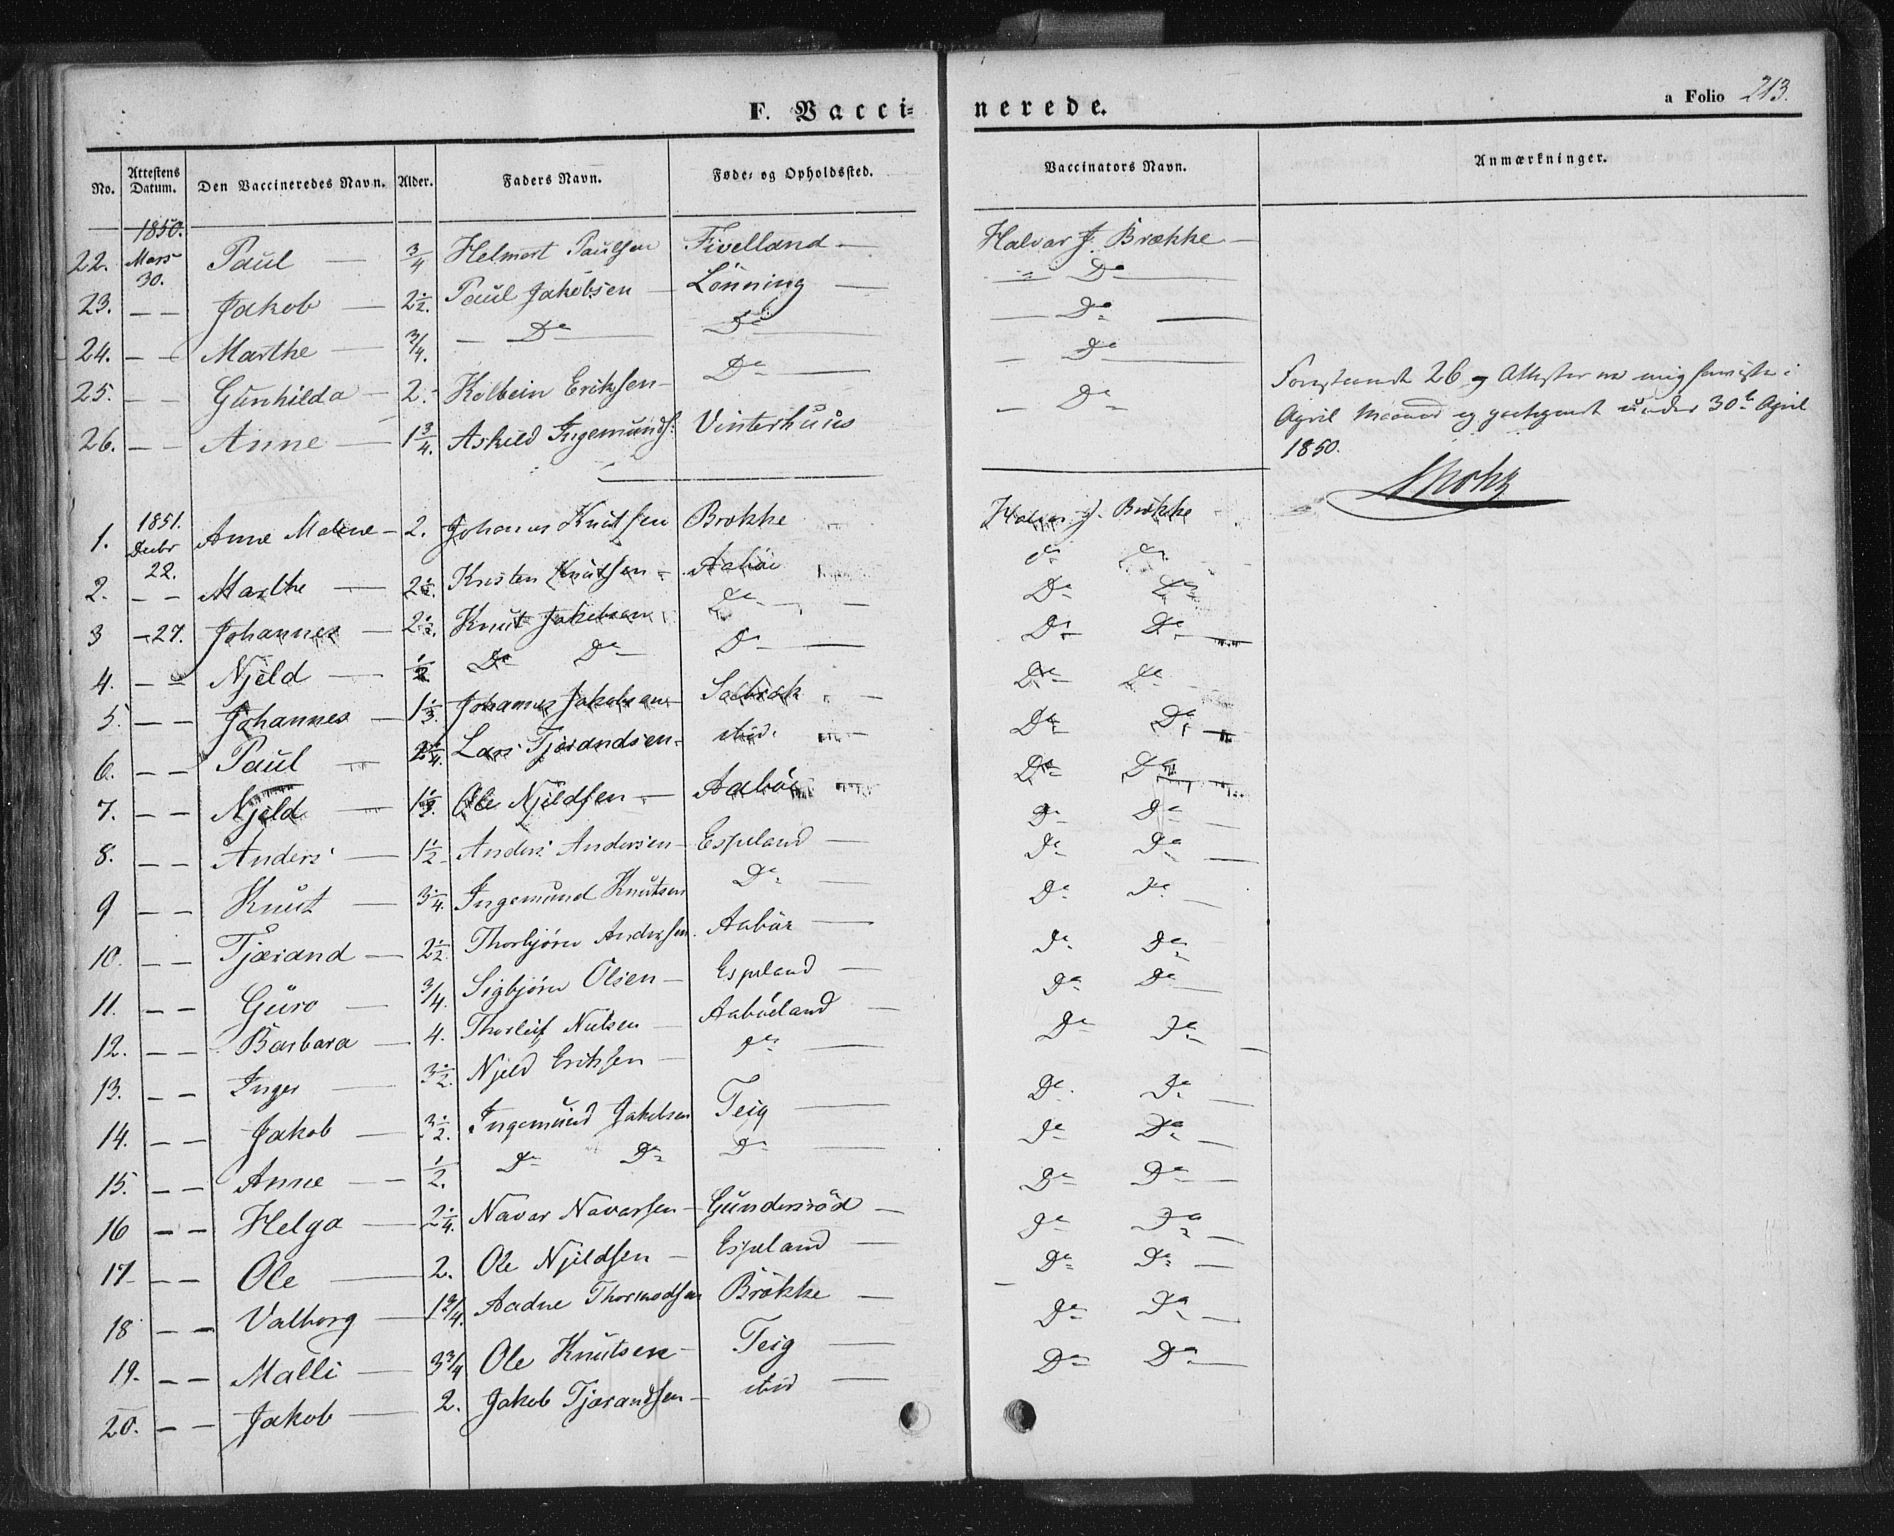 F. Vaccinerede.
a Folio 213.
No. Attestens Datum. Den Vaccineredes Navn. Alder. Faders Navn. Føde- og Opholdssted. Vaccinators Navn. Anmærkninger.
1850.
22. Mars 30. Paul — 3/4 Helmert Paulsen Fivelland — Halvor J. Brække —
23. — — Jakob — 2 1/2. Paul Jakobsen — Lønning — " Do
24. — — Marthe — 3/4. — Do — Do — Do —
25. — — Gunhilda — 2. Kolbein Eriksen — Do — Do
26. — — Anne — 1 3/4. Askild Ingemunds: Vinterhuus — Do
26 Attester
April Maaned under 30te April
1850.
1851.
1. Decbr 22. Anne Malene — 2. Johannes Knutsen Brokke J. Brokke
2. — — Marthe — 2 1/2. Kristen Knutsen — Aabøe Do Do
3 — 27. Johannes — 2 1/2. Knut Jakobsen Do — Do Do
4. — — Njeld — 1/2 Do Do Do — Do Do —
5. — — Johannes — 1 1/3. Johannes Jakobsen — Do Do
6. — — Paul — 2 1/4. Lars Tjerandsen — ibid. Do Do —
7. — — Njeld — 1 1/2. Ole Njeldsen — Aabøe Do Do
8. — — Anders — 1 1/2 Anders Andersen — Espeland — Do Do
9 — — Knut — 3 1/4. Ingemund Knutsen Do — Do Do —
10. — — Tjærand — 2 1/2 Thorbjørn Andersen. Aabøe — Do Do —
11. — — Guro — 3/4. Sigbjørn Olsen — Espeland — Do Do
12. — — Barbara — 4. Thorleif Nielsen — Aabøeland — Do Do —
13. — — Inger — 3 1/2. Njeld Eriksen — Do — Do Do —
14. — — Jakob — 3 1/2. Ingemund Jakobsen Teig — Do Do —
15. — — Anne — 1/2. Do Do Do — Do Do —
16 — — Helga — 2 1/4. Navar Navarsen — Gundersrød — Do Do —
17 — — Ole — 2. Ole Njeldsen — Espeland — Do Do —
18 — — Valborg — 1 3/4. Aadne Thormodsen Brøkke — Do Do —
19. — — Malli — 3 3/4 Ole Knutsen — Teig — Do Do —
20. — — Jakob — 2. Jakob Tjærandsen — ibid — Do Do —